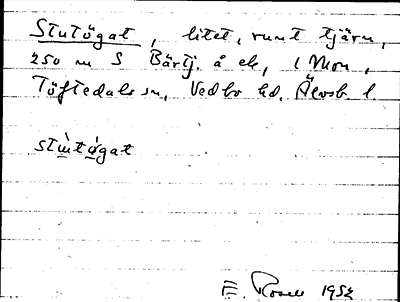 Stutögat, litet, runt tjärn,
250 m S Bärtj. å ek, 1 Mon,
Töftedals sn, Vedbo hd, Älvsb. l.
stùtö́gat
E. Rosell 1952